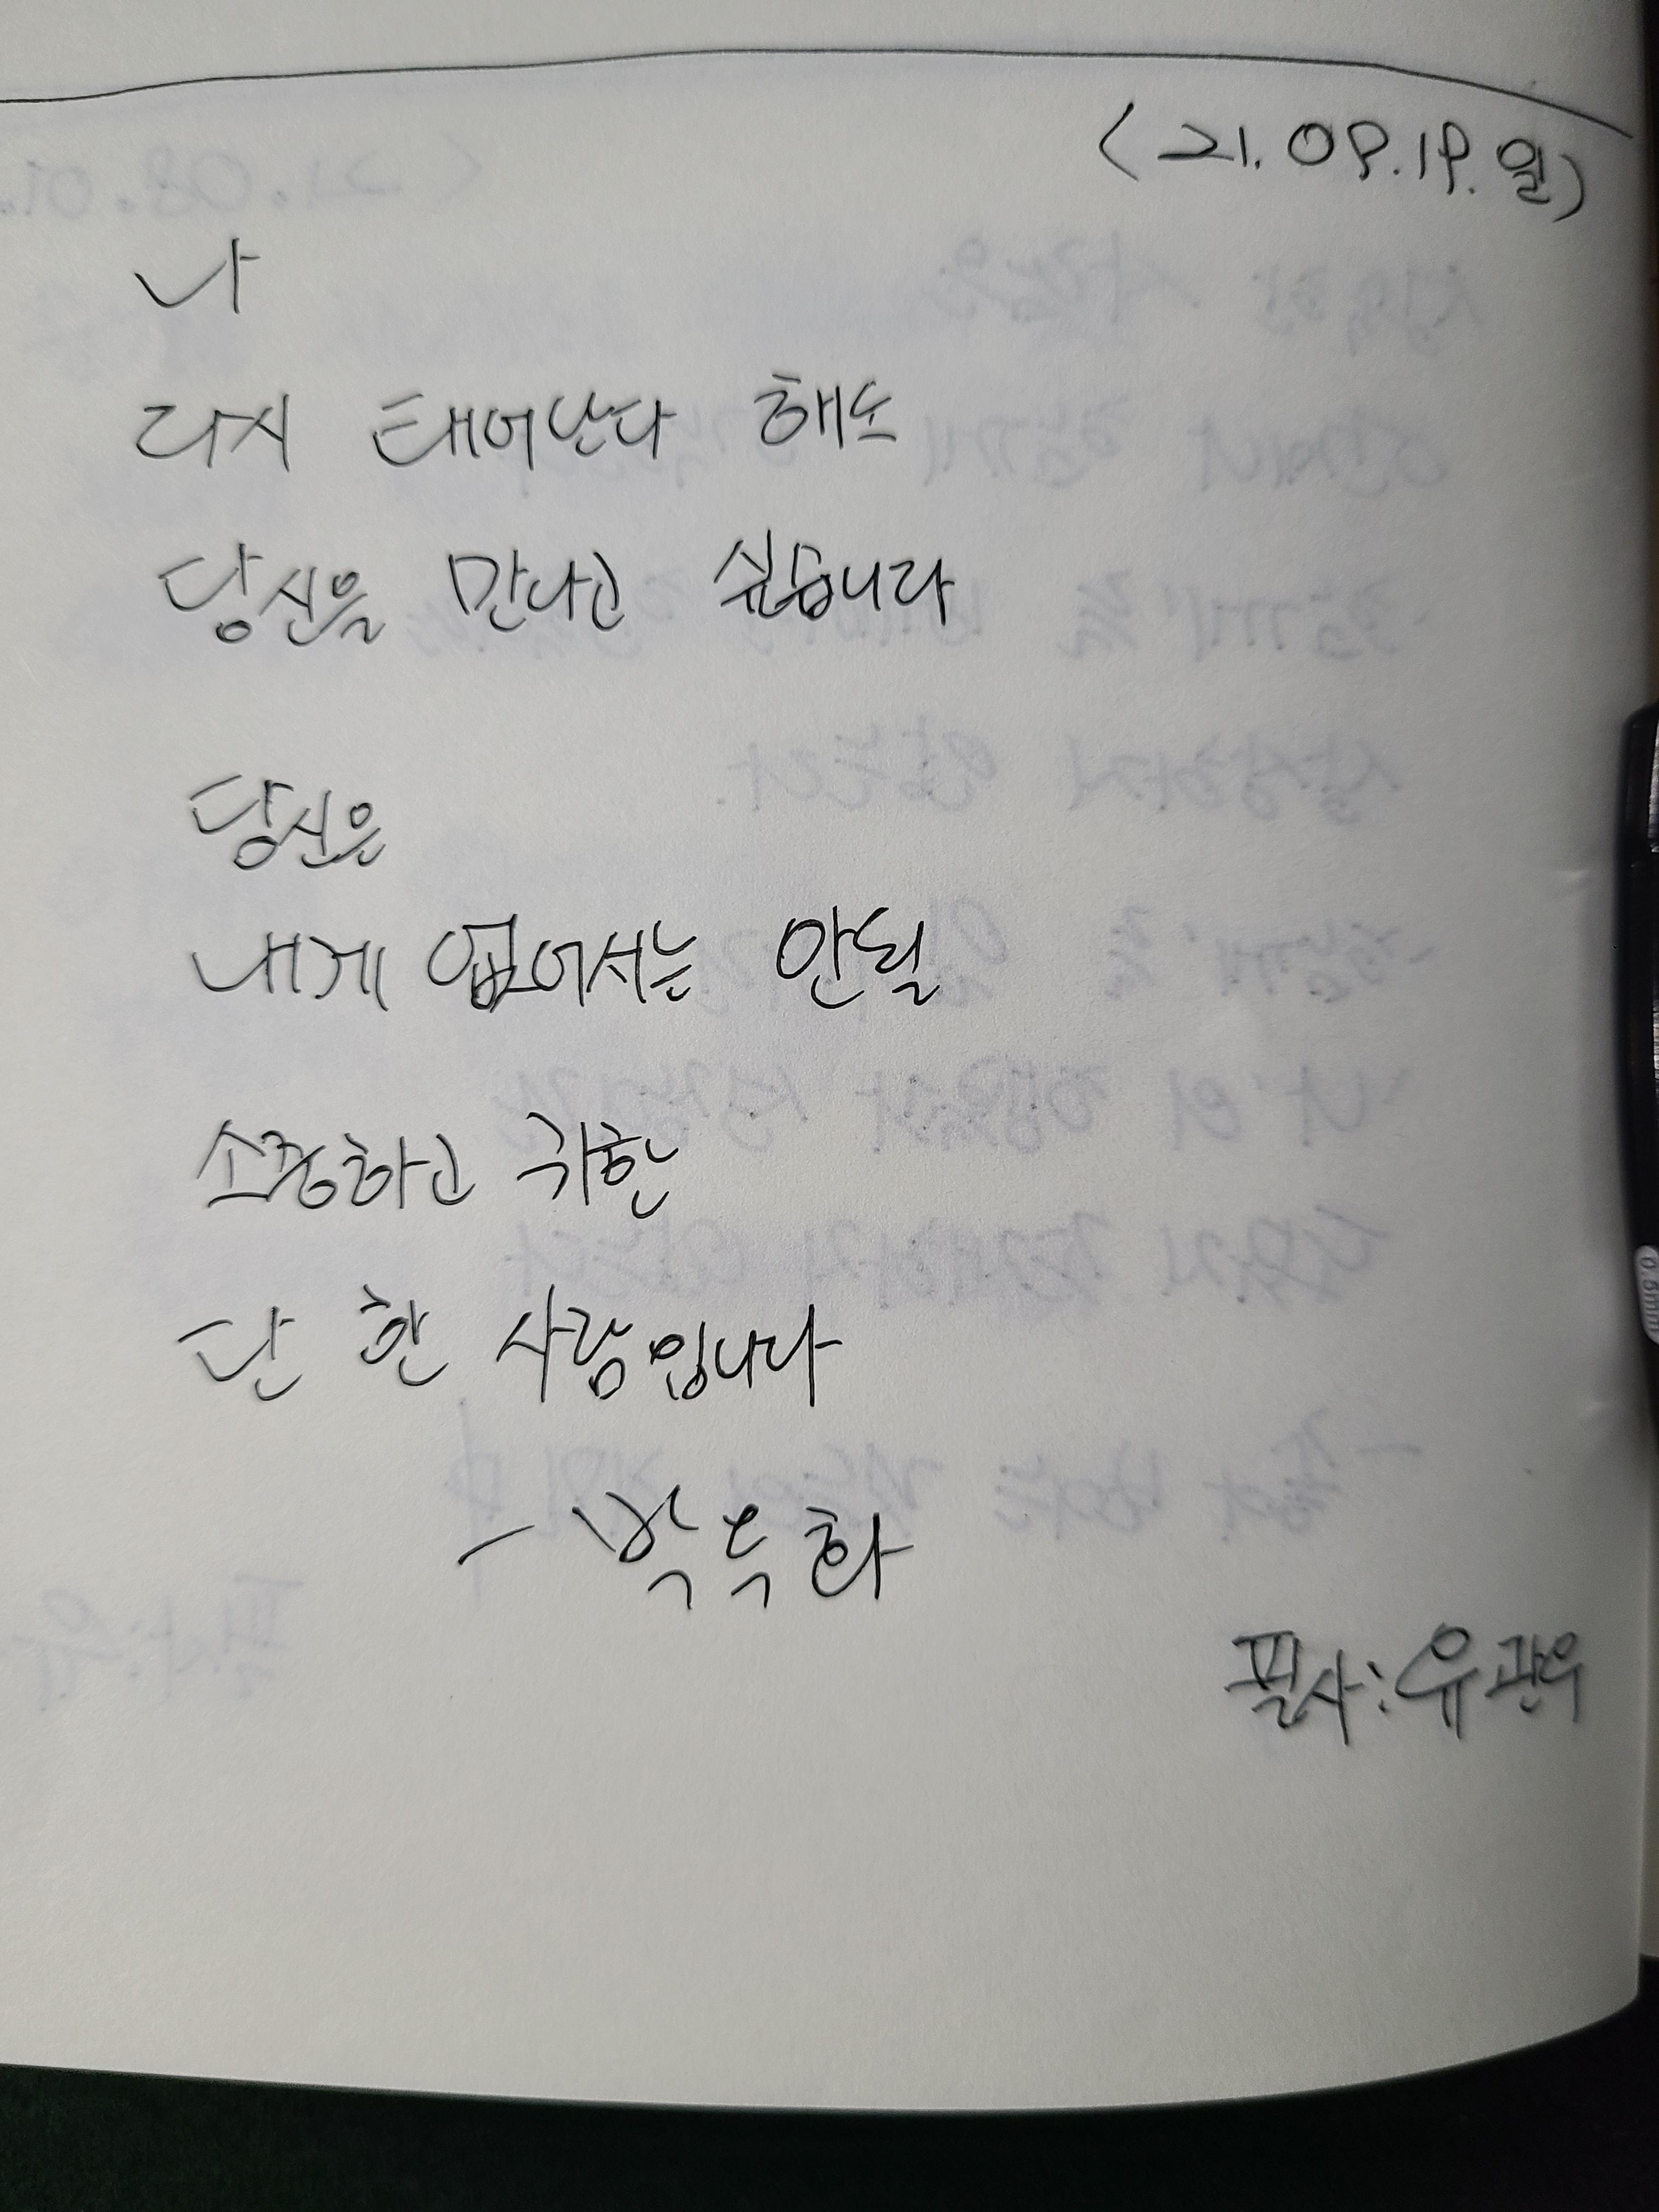 (21.09.19.
나
다시 태어난다 해도
당신을 만나고 싶습니다
당신은
내게 없어서는 안될
소중하고 귀한
단 한 사람입니다
필사:유관우
0.5mm